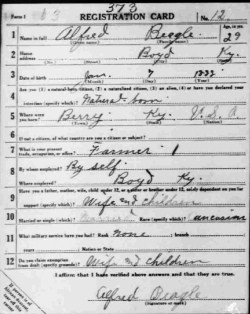 Form 1
373
REGISTRATION CARD No. 12
1 Name in full Alfred Beagle Age, in yrs. 29
(Given name) (Family name)
2 Home address Boyd Ky.
(No.) (Street) (City) (State)
3 Date of birth Jan. 7
(Month) (Day) (Year)
4 Are you (1) a natural-born citizen, (2) a naturalized citizen, (3) an alien, (4) or have you declared your
intention (specify which)? Natural born
5 Where were you born? Berry Ky. U.S.A.
(Town) (State) (Nation)
6 If not a citizen, of what country are you a citizen or subject?
7 What is your present trade, occupation, or office? Farmer
8 By whom employed? By self
Where employed? Boyd Ky.
9 Have you a father, mother, wife, child under 12, or a sister or brother under 12, solely dependent on you for
support (specify which)? Wife and children
10 Married or single (which)? Married Race (specify which)? Caucasian
11 What military service have you had? Rank None ; branch
years ; Nation or State
12 Do you claim exemption from draft (specify grounds)? Wife and children
I affirm that I have verified above answers and that they are true.
Alfred Beagle
(Signature or mark)